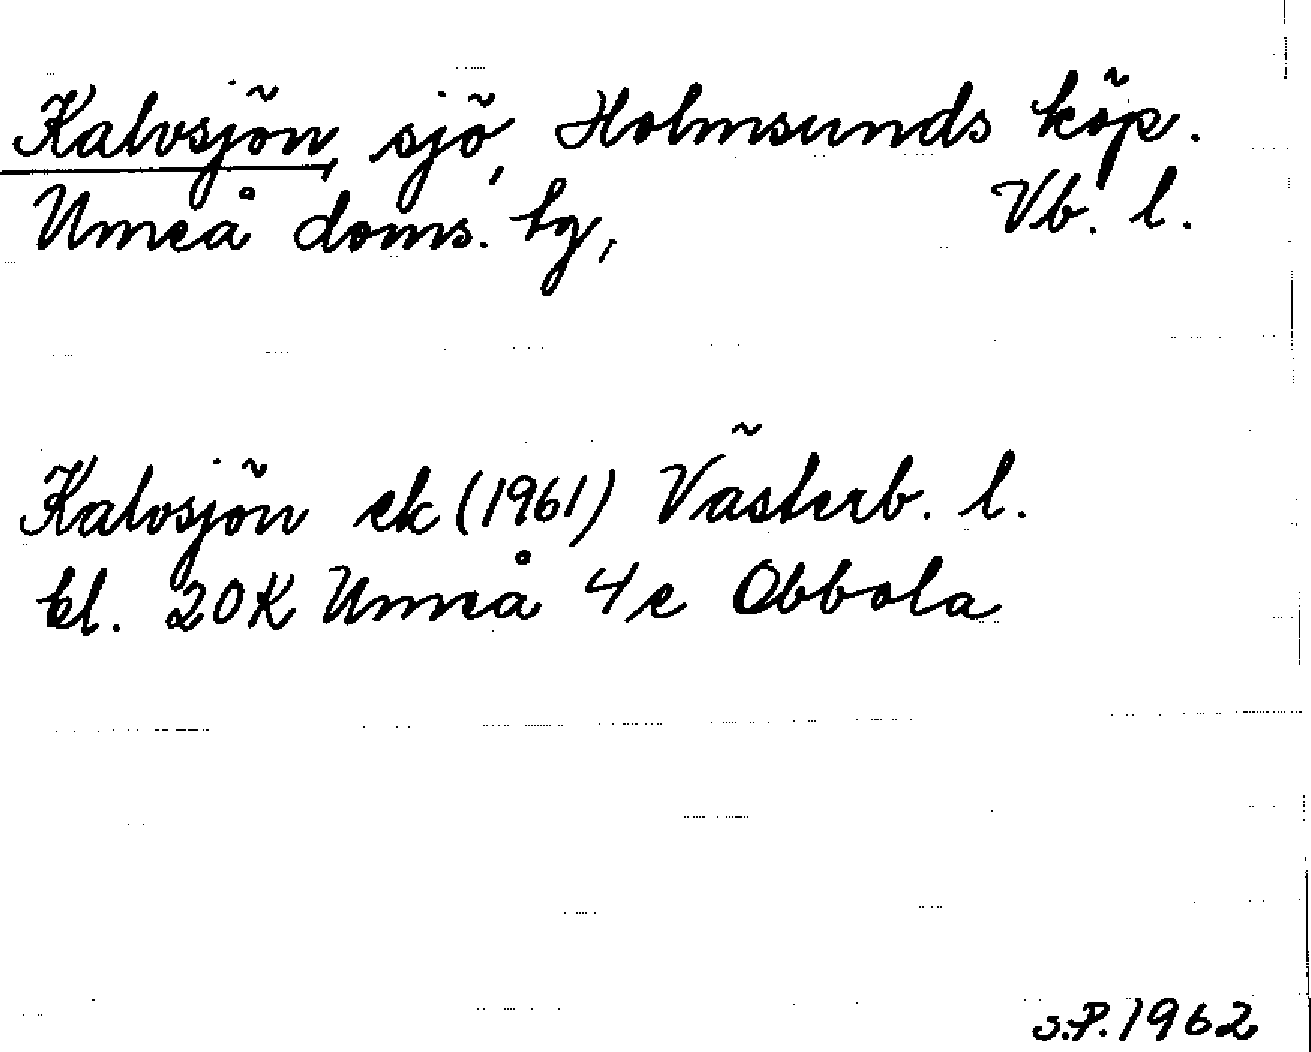 Kalvsjön, sjö, Holmsunds köp.
Umeå doms. tg, Vb. l.
Kalvsjön ek (1961) Västerb. l.
bl. 20K Umeå 4e Obbola
S.P. 1962